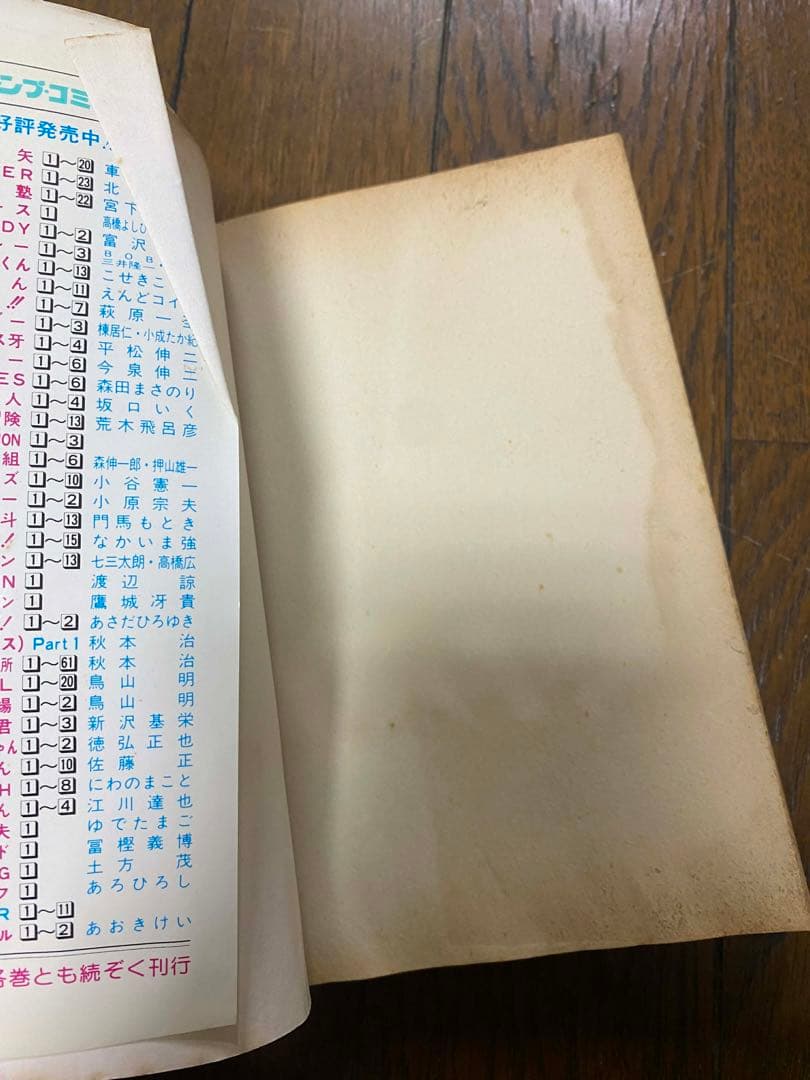 ンプ・コミ
好評発売中!!
矢 1〜20 車
ER 1〜23 北
塾 1〜22 宮下
ース 1 高橋よしひ
DY 1〜2 富沢
レー 1〜3 BOB・三井隆一
くん 1〜13 こせきこ
ん 1〜11 えんどコイ
!! 1〜7 萩原一
ー 1〜3 棟居仁・小成たか紀
ス牙 1〜4 平松伸二
ー 1〜6 今泉伸二
ES 1〜6 森田まさのり
人 1〜4 坂口いく
険 1〜13 荒木飛呂彦
ON 1〜3
組 1〜6 森伸一郎・押山雄一
ズ 1〜10 小谷憲一
ー 1〜2 小原宗夫
斗 1〜13 門馬もとき
! 1〜15 なかいま強
ン 1〜13 七三太朗・高橋広
N 1 渡辺諒
ン 1 鷹城冴貴
! 1〜2 あさだひろゆき
ス) Part1 秋本治
所 1〜61 秋本治
L 1〜20 鳥山明
場 1〜2 鳥山明
君 1〜3 新沢基栄
ゃん 1〜2 徳弘正也
ん 1〜10 佐藤正
H 1〜8 にわのまこと
ん 1〜4 江川達也
夫 1 ゆでたまご
ド 1 冨樫義博
G 1 土方茂
フ 1 あろひろし
R 1〜11
ル 1〜2 あおきけい
各巻とも続ぞく刊行